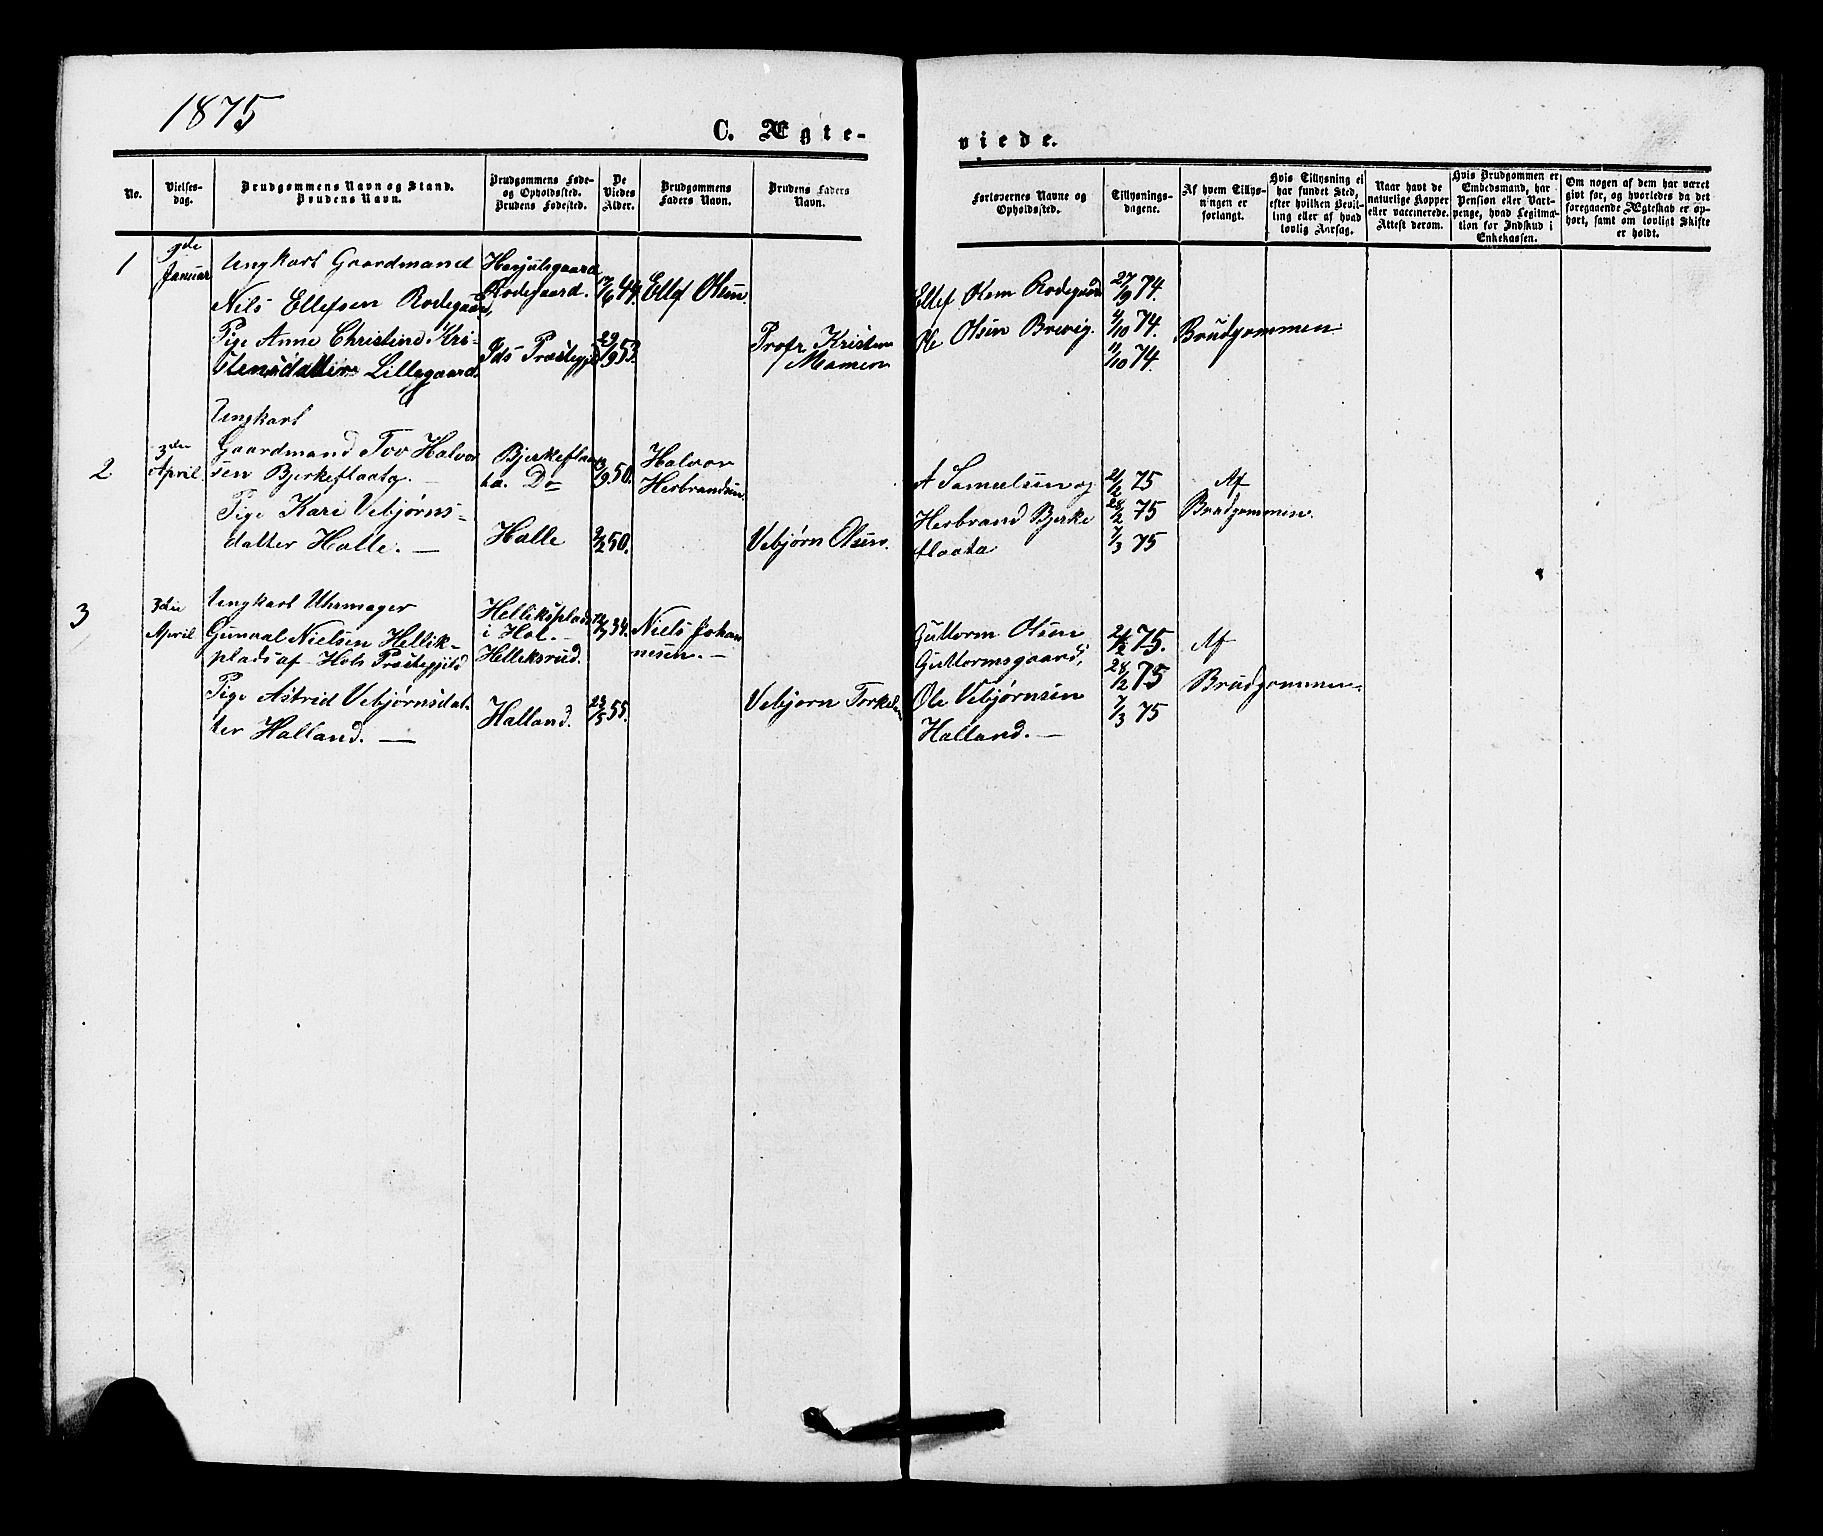 1875
C. Ægte-
viede.
No.
Vielses-
dag.
Brudgommens Navn og Stand.
Brudens Navn.
Brudgommens Føde-
og Opholdssted.
Brudens Fødested.
De
Viedes
Alder.
Brudgommens
Faders Navn.
Brudens Faders
Navn.
Forlovernes Navne og
Opholdssted.
Tillysnings-
dagene.
Af hvem Tillys-
ningen er
forlangt.
Hvis Tillysning ei
har fundet Sted,
efter hvilken Bevil-
ling eller af hvad
lovlig Aarsag.
Naar havt de
naturlige Kopper
eller vaccinerede.
Attest derom.
Hvis Brudgommen er
Embedsmand, har
Pension eller Vart-
penge, hvad Legitima-
tion for Indskud i
Enkekassen.
Om nogen af dem har været
gift før, og hvorledes da det
foregaaende Ægteskab er op-
hørt, samt om lovligt Skifte
er holdt.
1
9de
Januar
Ungkarl Gaardmand
Nils Ellefsen Rodegaard,
Pige Anne Christine Kri-
stensdatter Lillegaard.
Rodegaard.
Ids Præstegjeld
/6 44.
29/9 53.
Ellef Olsen
Kristen
Ellef Rodegaard
Ole Olsen Brevig.
27/9 74.
4/10 74.
11/10 74.
Brudgommen
2
3die
April.
Ungkarl
Gaardmand Tov Halvor
sen Bjerkeflaata. —
Pige Kari Vebjørns-
datter Halle. —
Bjerkeflaa
ta. Do
Halle
/9 50.
2/2 50.
Halvor
Herbrandsen
Vebjørn Olsen.
A Samuelsen og
Herbrand Bjerke
flaata
21/2 75
28/2 75
7/3 75
Af
Brudgommen.
3
3die
April
Ungkarl Uhrmager
Gunnal Nielsen Hellik-
plads af Hols Præstegjeld
Pige Astrid Vebjørnsdat-
ter Halland. —
Helliksplads
i Hol. —
Helliksrud.
Halland.
34.
23/5 55.
Niels Johan
nesen. —
Vebjorn Torkelsen
Guttorm Olsen
Guttormsgaard,
Ole Vebjørnsen
Halland. —
21/2 75.
28/2 75
7/3 75
Af
Brudgommen